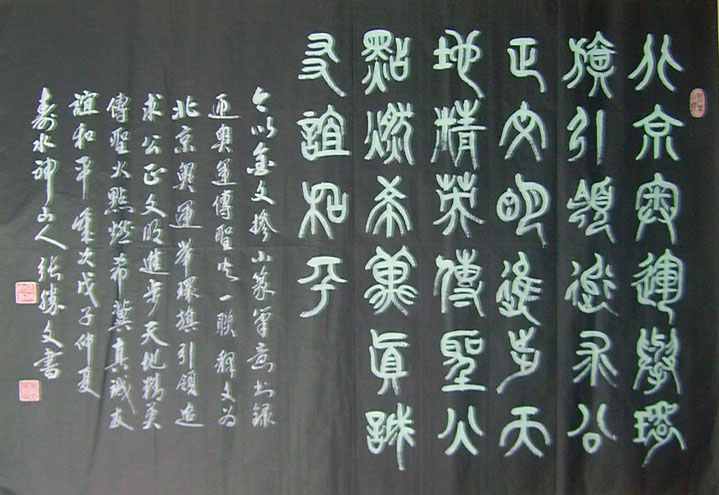 北京奥運舉環
旗引領追求公
正文明進步天
地精英傳聖火
點燃希冀真誠
友誼和平
今以金文摻小篆筆意书録
迎奥運傳聖火一聯釋文为
北京奥運舉環旗引領追
求公正文明進步天地精英
傳聖火點燃希冀真誠友
誼和平 歲次戊子仲夏
壽水神山人張勝文書